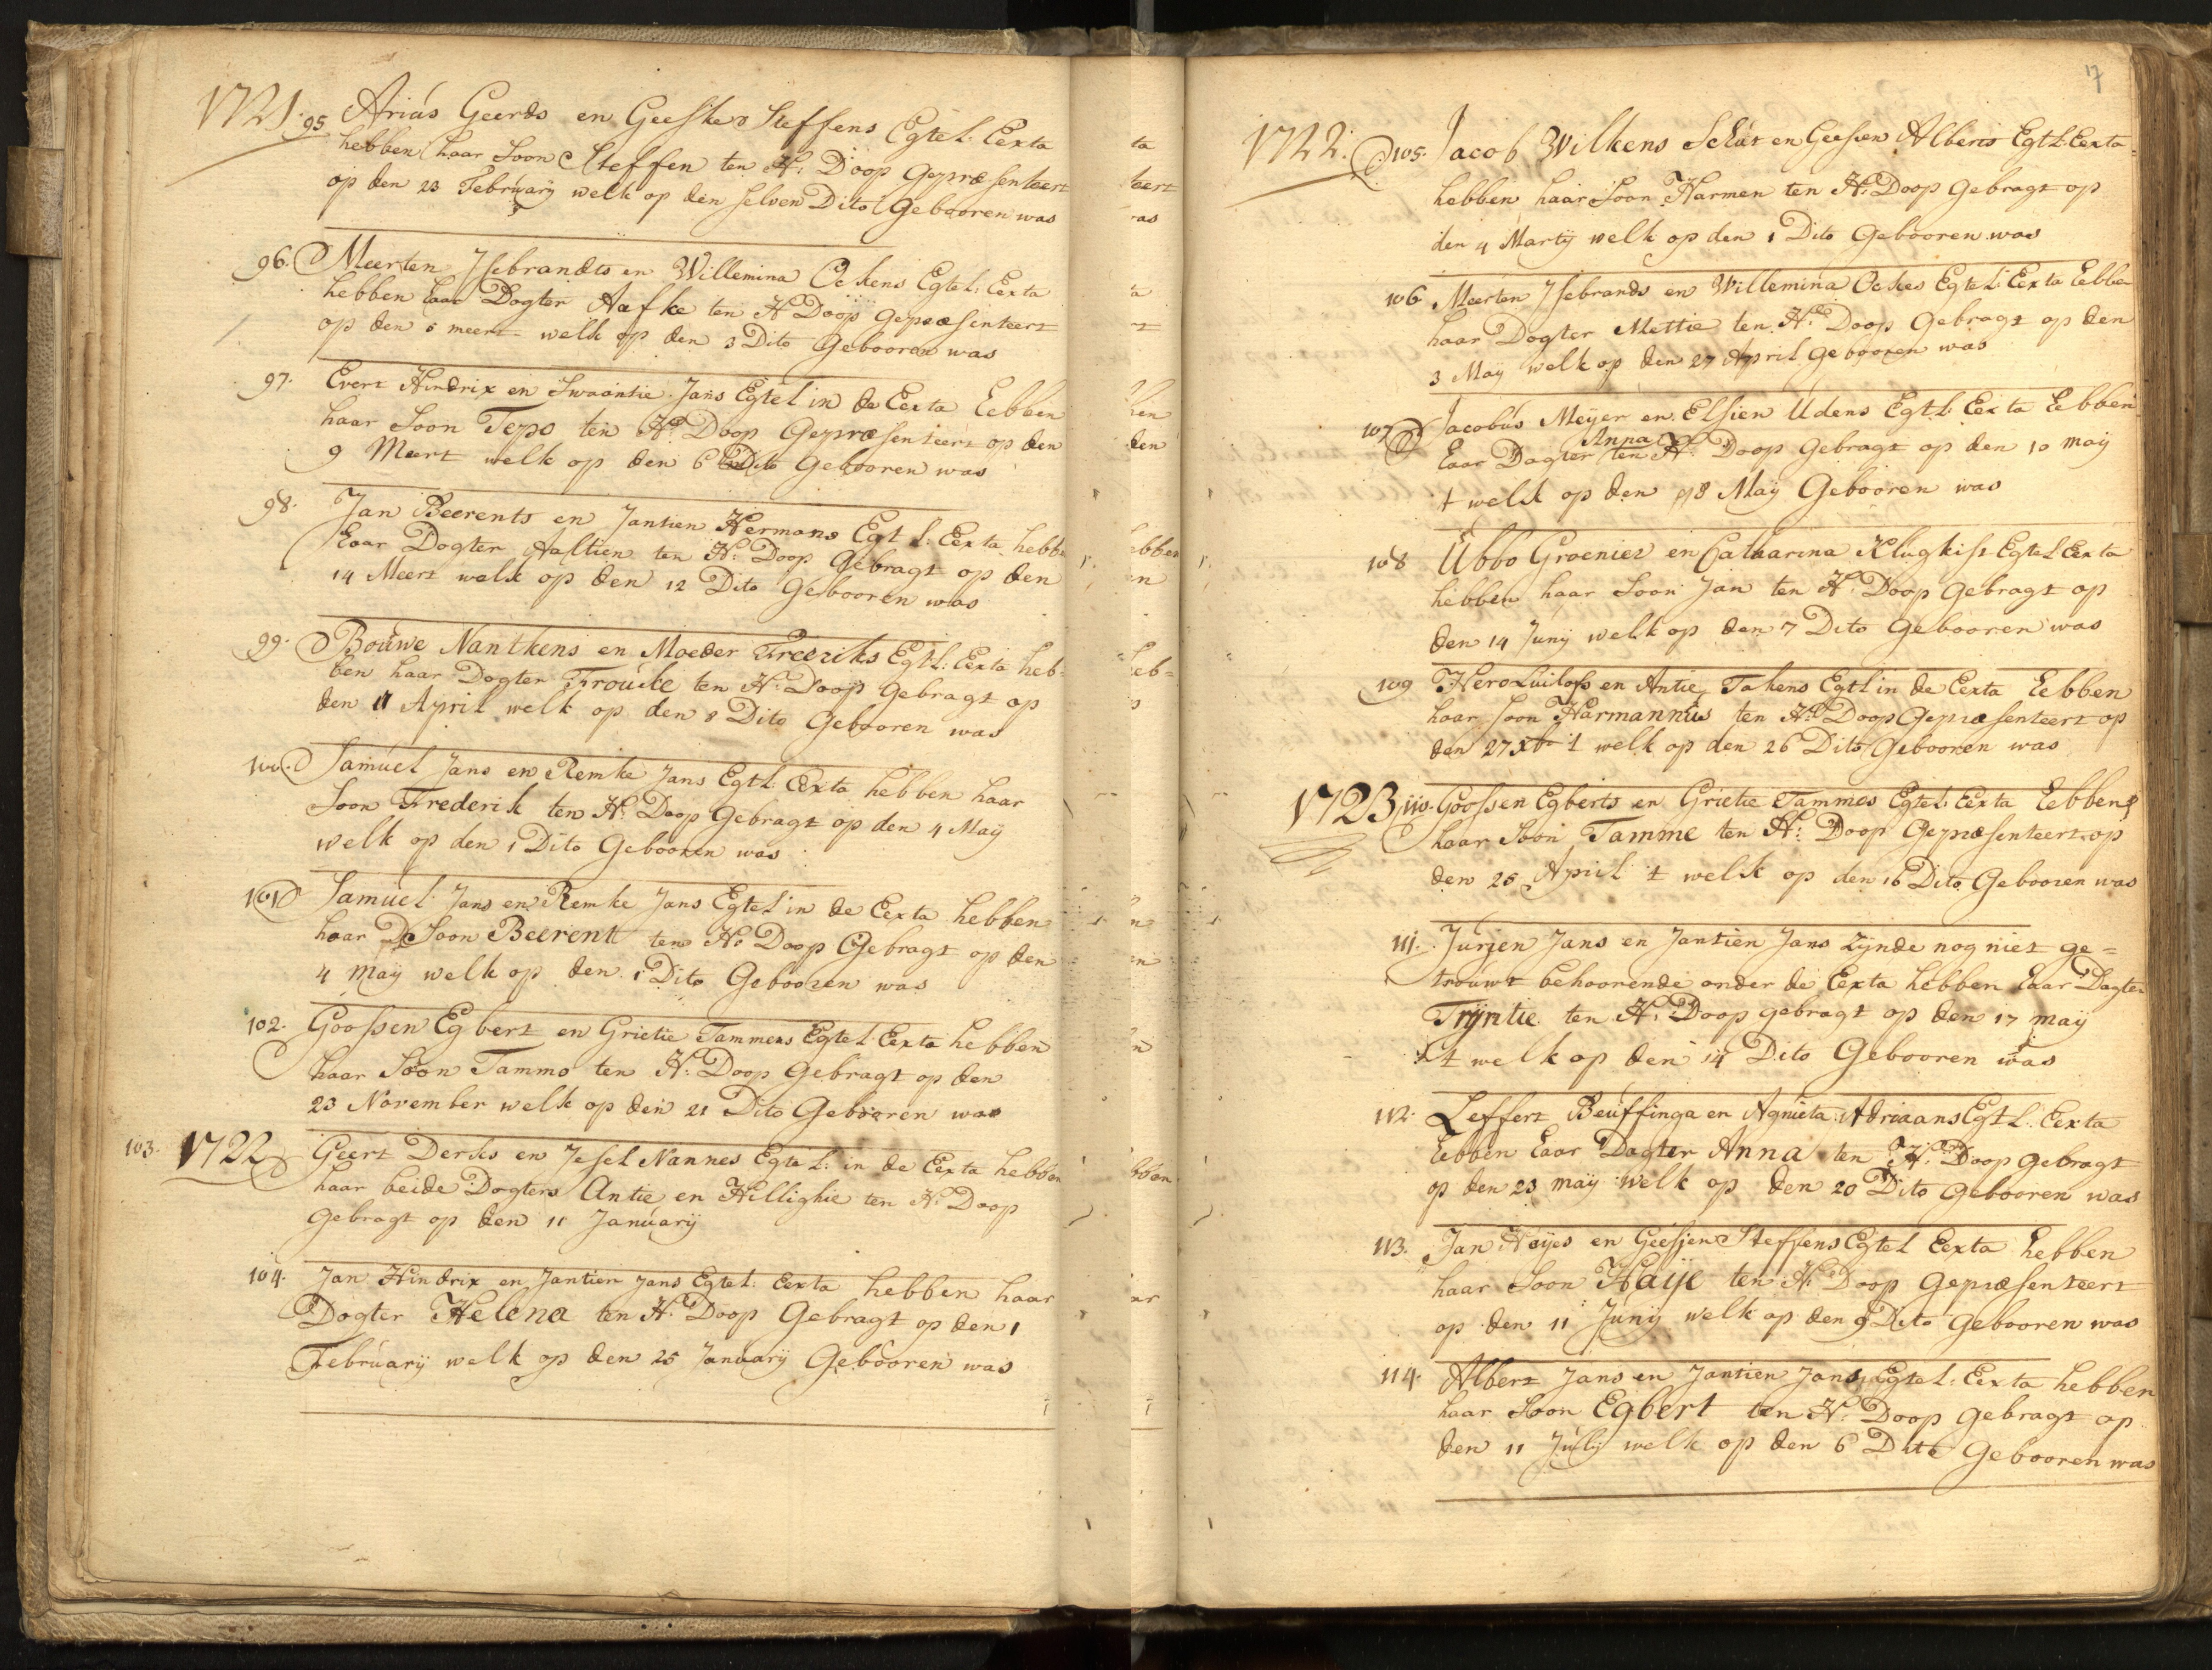 1721. 95 Ariäs Geerds en Geeske Steffens Egtel: Eexta
hebben haar Soon Steffen ten H: Doop Gepræsenteert
op den 23 Februarÿ welk op den selven Dito Gebooren was
96. Meerten Jsebrandts en Willemina Ockens Egtel: Eexta
hebben haar Dogter Aafke ten H Doop gepræsenteert
op den 5 meert welk op den 3 Dito Gebooren was
97. Evert Hindrix en Swaantie Jans Egtel in de Eexta hebben
haar Soon Tepo ten H: Doop Gepræsenteert op den
9 Meert welk op den 6 Dito Gebooren was
98. Jan Beerents en Jantien Hermans Egt l: Eexta hebben
haar Dogter Aaltien ten H: Doop Gebragt op den
14 Meert welk op den 12 Dito Gebooren was
99. Bouwe Nantkens en Moeder Freeriks Egtl: Eexta heb=
ben haar Dogter Frouke ten H: Doop gebragt op
den 11 April welk op den 8 Dito Gebooren was
100. Samuel Jans en Remke Jans Egtl: Eexta hebben haar
Soon Frederik ten H: Doop Gebragt op den 4 Maÿ
welk op den 1 Dito Gebooren was
101 Samuel Jans en Remke Jans Egtel in de Eexta hebben
haar Soon Beerent ten H: Doop Gebragt op den
4 maÿ welk op den 1 Dito Gebooren was
102. Goossen Egbert en Grietie Tammens Egtel Eexta hebben
haar Soon Tammo ten H: Doop Gebragt op den
23 November welk op den 21 Dito Gebooren was
103. 1722 Geert Derks en Jesel Nannes Egtel: in de Eexta hebben
haar beide Dogters Antie en Hillighie ten H: Doop
Gebragt op den 11 Januarÿ
104. Jan Hindrix en Jantien Jans Egtel: Eexta hebben haar
Dogter Helena ten H: Doop Gebragt op den 1
Februarÿ welk op den 25 Januarÿ Gebooren was
17
1722. 105. Jacob Wilkens Schut en Geesien Alberts Egtl: Eexta
hebben haar Soon Harmen ten H: Doop gebragt op
den 4 Martÿ welk op den 1 Dito Gebooren was
106 Meerten Jsebrands en Willemina Ockes Egtel: Eexta hebben
haar Dogter Mettie ten H: Doop Gebragt op den
3 Maÿ welk op den 27 April gebooren was
107 Jacobus Meÿer en Elsien Udens Egtl: Eexta hebben
haar Dogter Anna ten H: Doop Gebragt op den 10 maÿ
t welk op den 8 Maÿ Gebooren was
108 Ubbo Groenier en Catharina Klugkist Egtel Eexta
hebben haar Soon Jan ten H: Doop gebragt op
den 14 Junÿ welk op den 7 Dito gebooren was
109 Hero Luilofs en Antie Takens Egtl in de Eexta hebben
haar Soon Harmannus ten H: Doop Gepræsenteert op
den 27 Xbr t welk op den 26 Dito Gebooren was
1723 110. Goossen Egberts en Grietie Tammes Egtel: Eexta hebben
haar Soon Tamme ten H: Doop Gepræsenteert op
den 25 April t welk op den 16 Dito Gebooren was
111. Jurjen Jans en Jantien Jans zÿnde nog niet ge=
trouwt behoorende onder de Eexta hebben haar Dogter
Trÿntie ten H: Doop gebragt op den 17 maÿ
t welk op den 14 Dito Gebooren was
112. Leffert Beuffinga en Agnieta Adriaans Egtl: Eexta
hebben haar Dogter Anna ten H: Doop gebragt
op den 23 maÿ welk op den 20 Dito gebooren was
113. Jan Haÿes en Geesjen Steffens Egtel Eexta hebben
haar Soon Haije ten H: Doop gepræsenteert
op den 11 Junÿ welk op den 9 Dito gebooren was
114. Albert Jans en Jantien Jans, Egtel: Eexta hebben
haar Soon Egbert ten H: Doop gebragt op
den 11 Julÿ welk op den 6 Dito Gebooren was